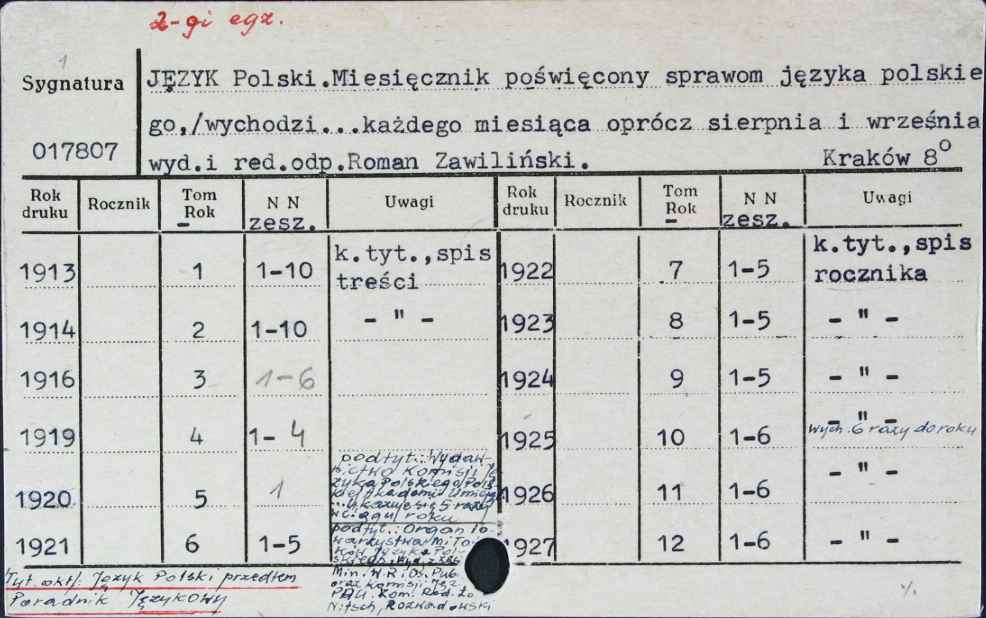 2-gi egz.
1
Sygnatura
017807
JĘZYK Polski.Miesięcznik poświęcony sprawom języka polskie
go,/wychodzi...każdego miesiąca oprócz sierpnia i września
wyd.i red.odp.Roman Zawiliński. Kraków 8°
Rok druku Rocznik Tom Rok N N zesz. Uwagi Rok druku Rocznik Tom Rok N N zesz. Uwagi
1913 1 1-10 k.tyt.,spis treści 1922 7 1-5 k.tyt.,spis rocznika
1914 2 1-10 - " - 1923 8 1-5 - " -
1916 3 1-6 1924 9 1-5 - " -
1919 4 1-4 1925 10 1-6 - " -
wych. 6 razy do roku
1920 5 1 1926 11 1-6 - " -
podtyt.: Wydaw-
nictwo Komisji Ję-
zyka Polskiego Pols
kiej Akademii Umiej.
5 razy
w ciągu roku
1921 6 1-5 1927 12 1-6 - " -
podtyt.: Organ To-
warzystwa Mi
ków Języka Pol-
skiego,
Min. W.R.i Oś. Pub.
oraz Komisji Jęz.
PAU. Kom. Red. Ło
Nitsch, Rozwadowski
Tyt. okł: Język Polski przedtem
Poradnik Językowy